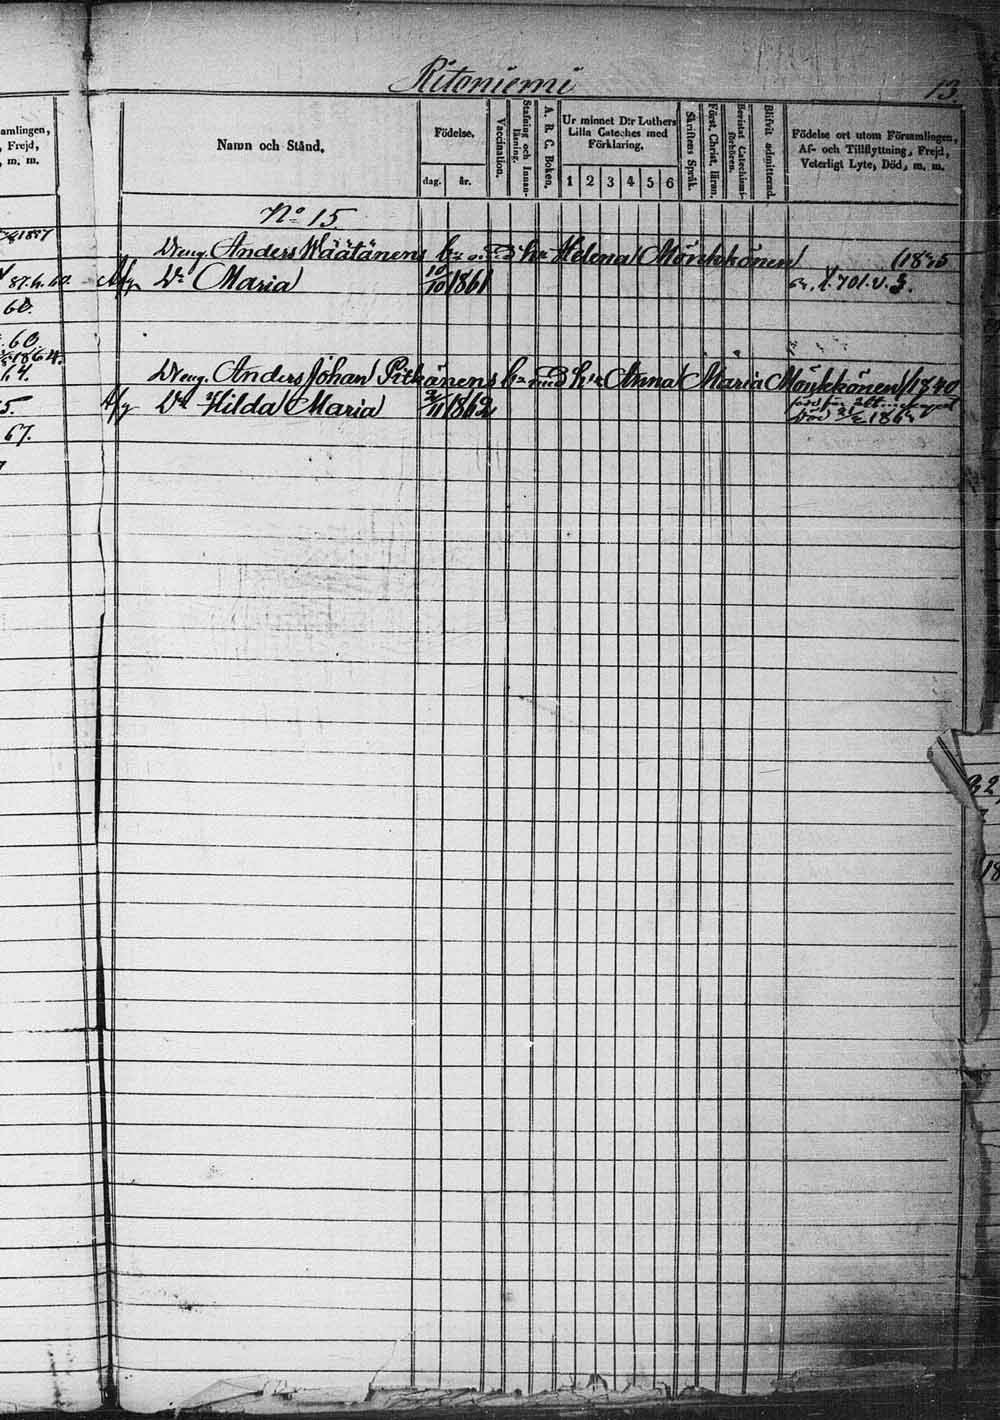 Ritoniemi
13.
amlingen,
, Frejd,
, m. m.
Namn och Stånd.
Födelse.
dag. år.
Vaccination.
Stafning och Innan-
läsning.
A. B. C. Boken.
Ur minnet D:r Luthers
Lilla Cateches med
Förklaring.
1 2 3 4 5 6
Skriftens Språk.
Först. Christ. läran.
Bevistat Catechismi-
förhören.
Blifvit admitterad.
Födelse ort utom Församlingen,
Af- och Tillflyttning, Frejd,
Veterligt Lyte, Död, m. m.
No 15.
Dreng. Anders Wäätänens med Helena Mönkkönen
Maria 10/10 1861 1.701.v.3.
60.
60.
1864.
64.
Dreng. Anders Johan Pitkänens med Anna Maria Mönkkönen 1840
Hilda Maria 2/11 1862
död
5.
67.